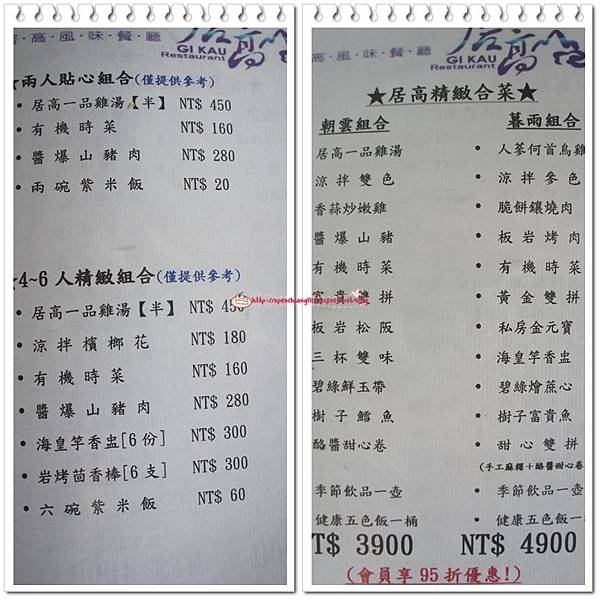 居·高·風·味·餐·廳
GI KAU
Restaurant
★兩人貼心組合(僅提供參考)
• 居高一品雞湯【半】 NT$ 450
• 有機時菜 NT$ 160
• 醬爆山豬肉 NT$ 280
• 兩碗紫米飯 NT$ 20
★4~6人精緻組合(僅提供參考)
• 居高一品雞湯【半】 NT$ 450
• 涼拌檳榔花 NT$ 180
• 有機時菜 NT$ 160
• 醬爆山豬肉 NT$ 280
• 海皇竿香盅[6份] NT$ 300
• 岩烤茴香棒[6支] NT$ 300
• 六碗紫米飯 NT$ 60
高·風·味·餐·廳
GI KAU
Restaurant
★居高精緻合菜★
朝雲組合
居高一品雞湯
涼拌雙色
香蒜炒嫩雞
醬爆山豬
有機時菜
富貴雙拼
板岩松阪
三杯雙味
碧綠鮮玉帶
樹子鱈魚
酪醬甜心卷
季節飲品一壺
健康五色飯一桶
T$ 3900
暮雨組合
• 人蔘何首烏雞
• 涼拌參色
• 脆餅鑲燒肉
• 板岩烤肉
• 有機時菜
• 黃金雙拼
• 私房金元寶
• 海皇竿香盅
• 碧綠燴蔴心
• 樹子富貴魚
• 甜心雙拼
(手工麻糬+酪醬甜心卷
• 季節飲品一壺
• 健康五色飯一
NT$ 4900
(會員享95折優惠!)